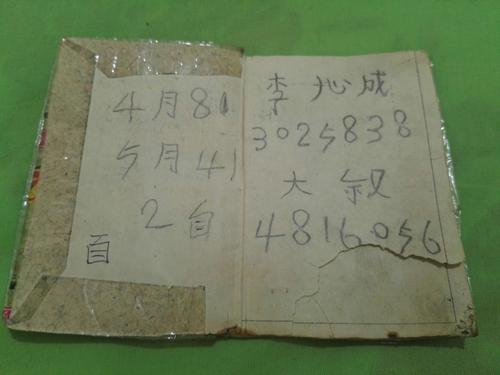 4月81
5月41
2自
百
李心成
3025838
大叔
4816056